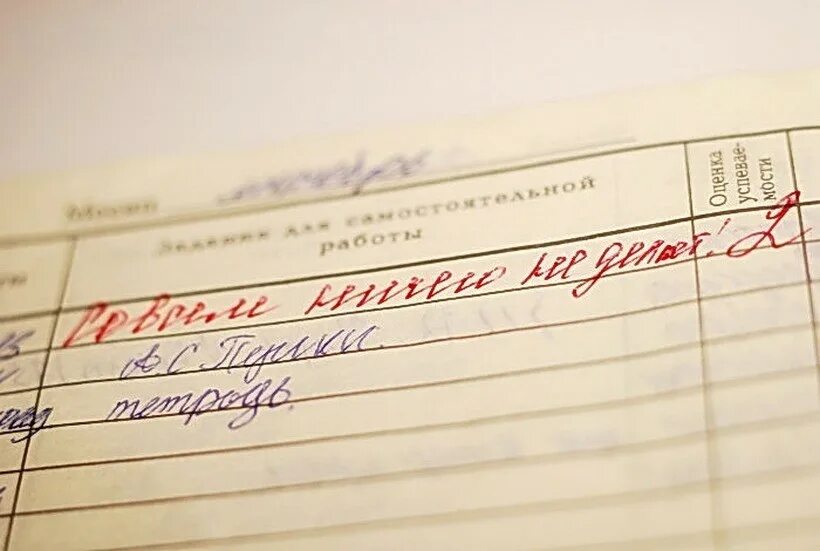 Месяц
Задания для самостоятельной
работы
Оценка
успевае-
мости
Совсем ничего не делает! 2
А С Пушки
тетрадь.